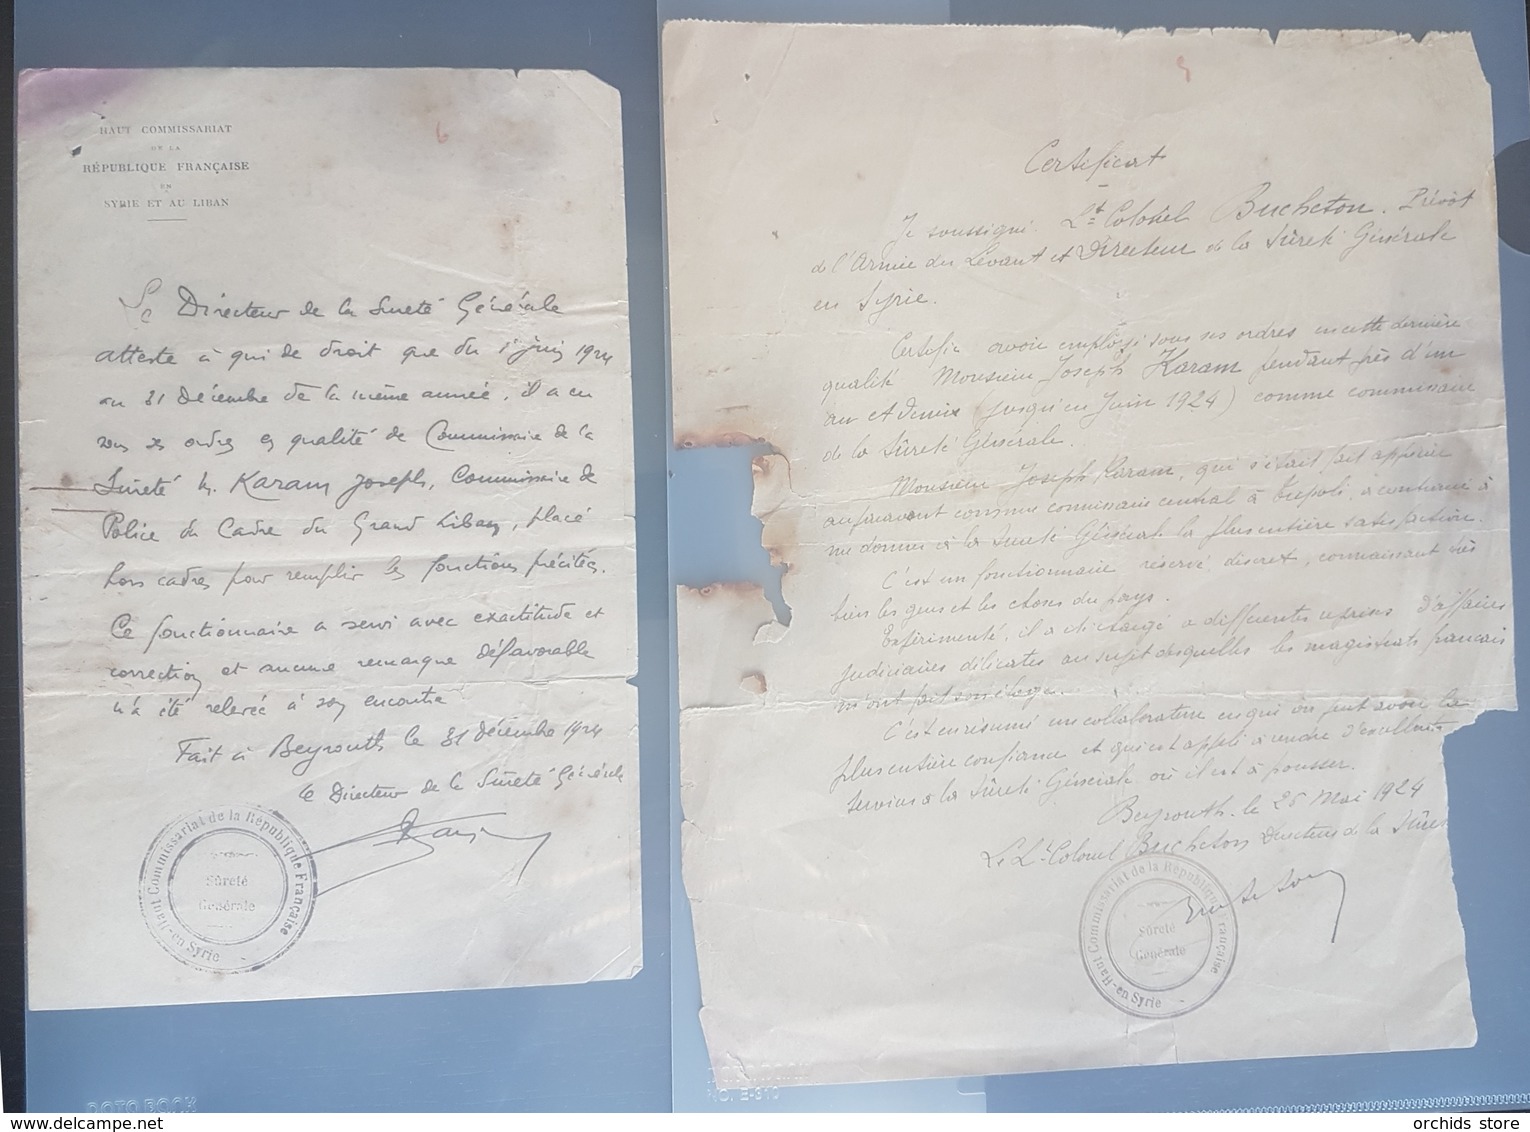 HAUT COMMISSARIAT
DE LA
RÉPUBLIQUE FRANÇAISE
EN
SYRIE ET AU LIBAN
6
Le Directeur de la Sureté Générale
atteste à qui de droit que du 1er juin 1924
au 31 Décembre de la même année, il a eu
sous ses ordres en qualité de Commissaire de la
Sureté M. Karam Joseph, Commissaire de
Police du Cadre du Grand Liban, placé
hors cadres pour remplir les fonctions précitées.
Ce fonctionnaire a servi avec exactitude et
correction et aucune remarque défavorable
n'a été relevée à son encontre
Fait à Beyrouth le 31 décembre 1924
Le Directeur de la Sûreté Générale
Haut Commissariat de la République Française
- en Syrie -
Sûreté
Générale
Certificat
Je soussigné Lt Colonel Bucheton. Prévôt
de l'Armée du Levant et Directeur de la Sûreté Générale
en Syrie.
Certifie avoir employé sous ses ordres en cette dernière
qualité Monsieur Joseph Karam pendant près d'un
an et demi (jusqu'en Juin 1924) comme commissaire
de la Sûreté Générale.
Monsieur Joseph Karam, qui s'était fait apprécier
auparavant comme commissaire central à Tripoli, a continué à
me donner à la Sureté Générale la plus entière satisfaction.
C'est un fonctionnaire réservé, discret, connaissant très
bien les gens et les choses du pays.
Expérimenté, il a été chargé à différentes reprises d'affaires
judiciaires délicates au sujet desquelles les magistrats francais
m'ont fait son éloge.
C'est en resumé un collaborateur en qui on peut avoir la
plus entière confiance et qui est appelé à rendre d'excellents
services à la Sûreté Générale où il est à pousser.
Beyrouth, le 25 Mai 1924
Le Lt Colonel Bucheton Directeur de la Sûre
Bucheton
Haut Commissariat de la République Française
- en Syrie -
Sûreté
Générale
NO. E-310
orchids store